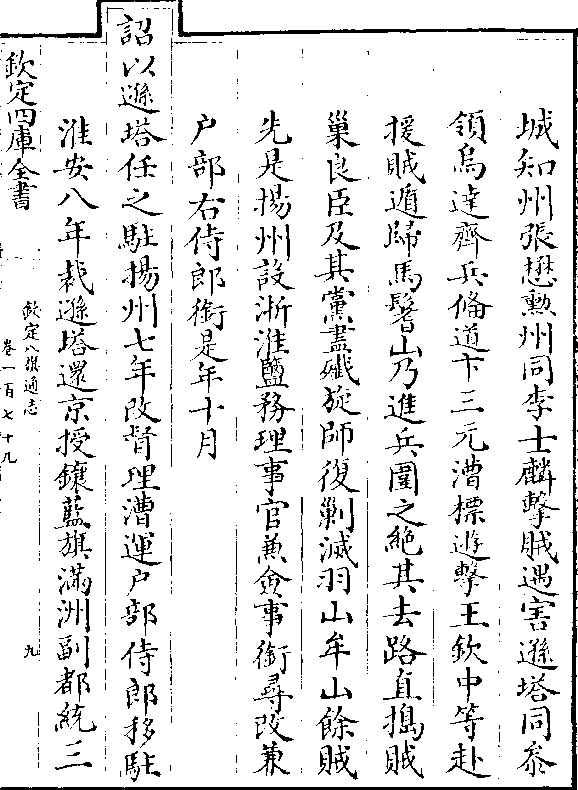 城知州張懋勲州同李士麟擊賊遇害遜塔同叅
領烏達齊兵備道卞三元漕標逰擊王欽中等赴
援賊遁歸馬鬐山乃進兵圍之絶其去路直搗賊
巢良臣及其黨盡殲旋師復剿滅羽山牟山餘賊
先是揚州設浙淮鹽務理事官兼僉事銜尋改兼
户部右侍郎銜是年十月
詔以遜塔任之駐揚州七年改督理漕運户部侍郎移駐
淮安八年裁遜塔還京授鑲藍旗滿洲副都統三
欽定四庫全書
欽定八旗通志
卷一百七十九
九